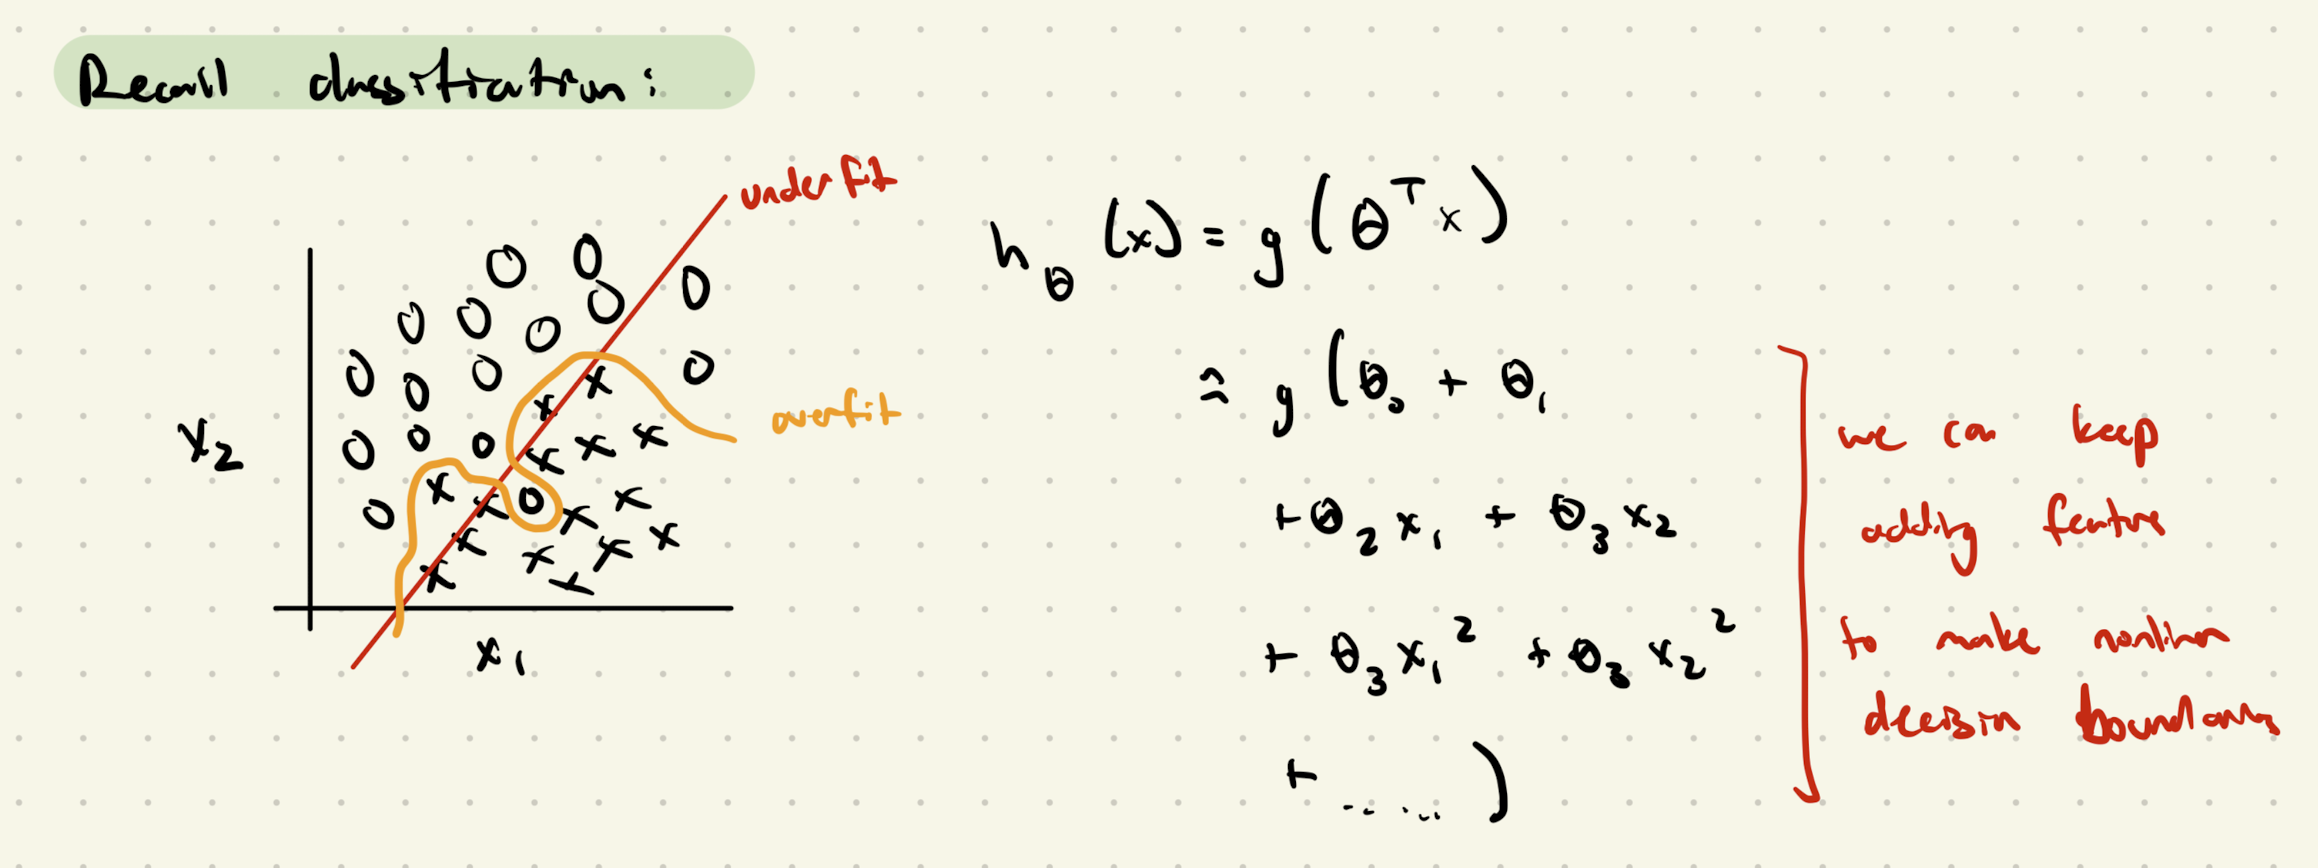 Recall classification:
underfit
overfit
x₂
x₁
h_θ (x) = g (θᵀx)
= g (θ₀ + θ₁
+ θ₂ x₁ + θ₃ x₂
+ θ₃ x₁² + θ₃ x₂²
+ ......)
we can keep
adding feature
to make nonlinear
decision boundary